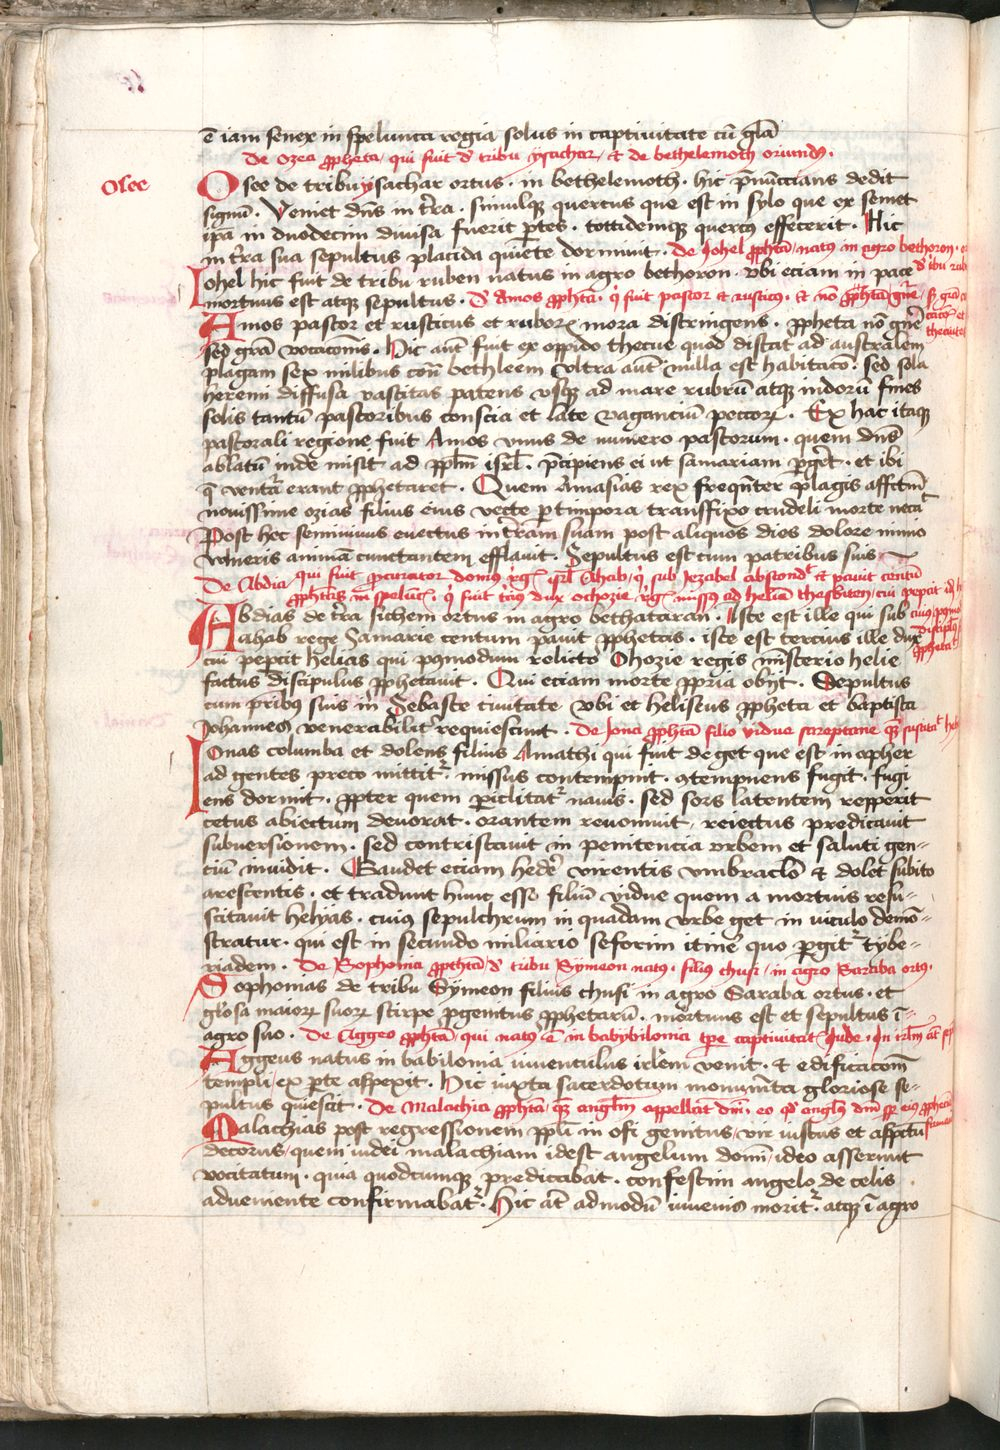 ē iam senex in spelunca regia solus in captivitate cū gl̄a
De Ozea ꝓpheta / qui fuit d' tribu ysachar / et de bethelemoth oriundꝰ ·
Osee
Osee de tribu ysachar ortus · in bethelemoth · hic p̄nūccians dedit
signū · Veniet dn̄s in t̄ra · simulqꝫ quercus que est in sylo que ex semet
ip̄a in duodecim divisa fuerit ꝑtes · tottidemqꝫ quercꝰ effecerit · Hic
in t̄ra sua sepultus placida quiete dormiuit · De Johel ꝓphā / natꝰ in agro bethoron ·
Iohel hic fuit de tribu ruben natus in agro bethoron · vbi eciam in pace
mortuus est atqꝫ sepultus · D' Amos ꝓphā · q̇ fuit pastor et rusticꝰ · et nō ꝓphā / gn̄e /
Amos pastor et rusticus et ruborꝝ mora distringens · ꝓpheta nō gn̄e
sed grā vocacōnis · Hic aūt fuit ex oppido thecue quod distat ad australem
plagam sex milibus coñ bethleem vltra aūt nulla est habitacō · sed sola
heremi diffusa vastitas patens vsqꝫ ad mare rubrū atqꝫ indorū fines
solis tantū pastoribus conscia et late vaganciū peccorꝝ · Ex hac itaqꝫ
pastorali regione fuit Amos vnus de numero pastorum · quem dn̄s
ablatū inde misit ad pp̄lm isrl̄ · p̄cipiens ei ut samariam ꝑgēt · et ibi
q̄ ventā erant ꝓphetaret · Quem Amasias rex freqn̄ter plagis afflm̄
novissime ozias filius eius vecte ꝑ timpora transfixo crudeli morte necāt
Post hec seminiuus euectus in t̄ram suam post aliquos dies dolore nimio
vulneris animā cunctantem efflauit · Sepultus est cum patribus suis
De Abdia / qui fuit ꝓcurator domꝰ rḡꝭ isrl̄ Ahab / q̇ sub Jezabel abscond' et pauit centū
ꝓphetas in speluñ · q̇ fuit t̄ciꝰ dux ochozie rḡꝭ missꝰ ad heliā thesbiten / cui pepcit
Abdias de t̄ra sichem ortus in agro bethataran · Iste est ille qui sub
ahab rege Samarie centum pauit ꝓphetas · iste est tercius ille dux
cui pepcit helias qui pꝰmodum relicto Ohozie regis mīsterio helie
factus discipulus ꝓphetauit · Qui eciam morte ꝓpria obijt · Sepultus
cum p̄ribꝰ suis in Sebaste ciuitate vbi et heliseus ꝓpheta et baptista
Johannes venerabilit̄ requiescunt · De Jona ꝓphā filio vidue sareptane qm̄ suscitat
Ionas columba et dolens filius Amathi qui fuit de get que est in opher
ad gentes preco mittitʳ · missus contempnit · ꝯtempnens fugit · fugi
ens dormit · ꝓpter quem ꝑiclitatʳ nauis · sed sors latentem repperit
cetus abiectum deuorat · orantem reuomuit / reiectus predicauit
subuersionem · sed contristauit in penitencia vrbem et saluti gen-
ciū inuidit · Gaudet eciam hedē virentis vmbraclō et dolet subito
arescentis · et tradunt hunc esse filiū vidue quem a mortuis resu-
scitauit helyas · cuius sepulchrum in quadam vrbe get in viculo demō-
stratur · qui est in secundo miliario seforim itine' quo ꝑgitʳ tybe-
riadem · De Sophonia ꝓphetā / d' tribu Symeon natꝰ · filiꝰ chusi / in agro Saraba ortꝰ ·
Sophonias de tribu Symeon filius chusi in agro Saraba ortus · et
glōsa maiorꝝ suorꝝ stirpe ꝓgenitus ꝓphetariū · mortuus est et sepultus ī
agro suo · De Aggeo ꝓphā / qui natꝰ ē in babybilonia tꝑe captiuitatꝭ Jude ·
Aggeus natus in babilonia iuuenculus irl̄em venit · et edificacōem
templi / ex ꝑte aspexit · Hic iuxta sacerdotum monum̄ta gloriose se-
pultus quiescit · De Malachia ꝓphā / qm̄ angl̄m appellāt dnī · eo qd' anglꝰ dnī
Malachias post regressionem pp̄li in ofi genitus / vir iustus et aspectu
decorus / quem iudei malachiam idest angelum domī / ideo asserunt
vocitatum · quia quodcumqꝫ predicabat · confestim angelo de celis
adueniente confirmabatʳ · Hic aūt admodū iuuenis moritʳ · atqꝫ ī agro